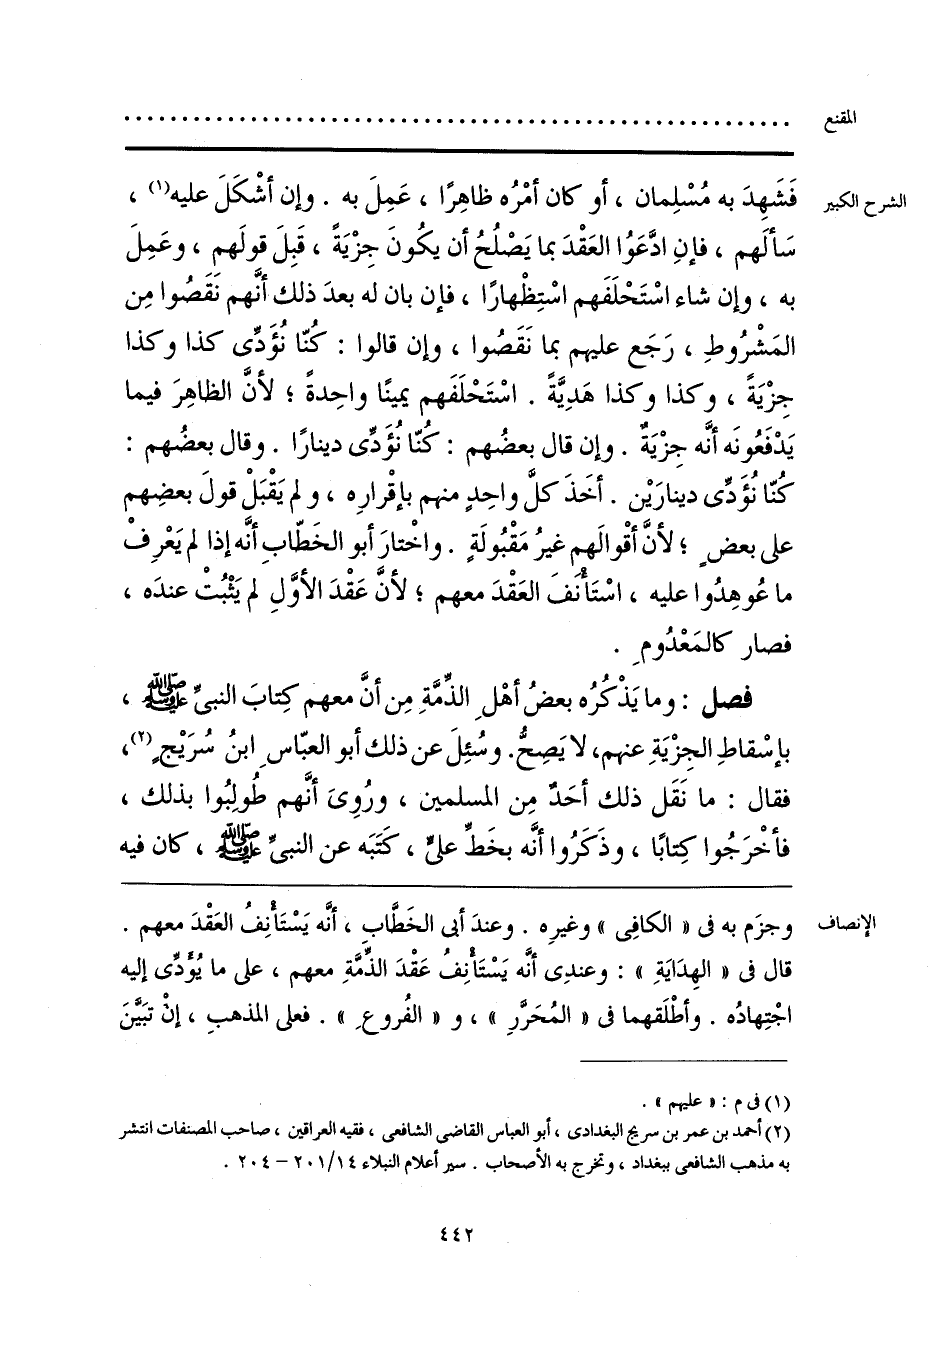 المقنع ......................................................
الشرح الكبير فَشَهِدَ به مُسْلِمان ، أو كان أمْرُه ظاهِرًا ، عَمِلَ به . وإن أشْكَلَ عليه(١) ،
سَألَهم ، فإنِ ادَّعَوُا العَقْدَ بما يَصْلُحُ أن يكُونَ جِزْيَةً ، قَبِلَ قولَهم ، وعَمِلَ
به ، وإن شاء اسْتَحْلَفَهم اسْتِظْهارًا ، فإن بان له بعدَ ذلك أنَّهم نَقَصُوا مِن
المَشْرُوطِ ، رَجَع عليهم بما نَقَصُوا ، وإن قالوا : كُنّا نُؤَدِّى كذا وكذا
جِزْيَةً ، وكذا وكذا هَدِيَّةً . اسْتَحْلَفَهم يمينًا واحِدةً ؛ لأنَّ الظاهِرَ فيما
يَدْفَعُونَه أنَّه جِزْيَةٌ . وإن قال بعضُهم : كُنّا نُؤَدِّى دينارًا . وقال بعضُهم :
كُنّا نُؤَدِّى دينارَيْن . أخَذَ كلَّ واحِدٍ منهم بإقْرارِه ، ولم يَقْبَلْ قولَ بعضِهم
على بعضٍ ؛ لأنَّ أقْوالَهم غيرُ مَقْبُولَةٍ . واخْتارَ أبو الخَطّابِ أنَّه إذا لم يَعْرِفْ
ما عُوهِدُوا عليه ، اسْتَأْنَفَ العَقْدَ معهم ؛ لأنَّ عَقْدَ الأوَّلِ لم يَثْبُتْ عندَه ،
فصار كالمَعْدُومِ .
فصل : وما يَذْكُرُه بعضُ أهْلِ الذِّمَّةِ مِن أنَّ معهم كِتابَ النبىِّ ﷺ ،
بإسْقاطِ الجِزْيَةِ عنهم، لا يَصِحُّ. وسُئِلَ عن ذلك أبو العبّاسِ ابنُ سُرَيْجٍ(٢)،
فقال : ما نَقَل ذلك أحَدٌ مِن المسلمين ، ورُوِىَ أنَّهم طُولِبُوا بذلك ،
فأخْرَجُوا كِتابًا ، وذَكَرُوا أنَّه بخَطِّ علىٍّ ، كَتَبَه عن النبىِّ ﷺ ، كان فيه
الإنصاف وجزَم به فى « الكافِى » وغيرِه . وعندَ أبى الخَطَّابِ ، أنَّه يَسْتَأْنِفُ العَقْدَ معهم .
قال فى « الهِدَايَةِ » : وعندِى أنَّه يَسْتَأْنِفُ عَقْدَ الذِّمَّةِ معهم ، على ما يُؤَدِّى إليه
اجْتِهادُه . وأطْلَقهما فى « المُحَرَّرِ » ، و « الفُروعِ » . فعلى المذهبِ ، إنْ تبَيَّنَ
(١) فى م : « عليهم » .
(٢) أحمد بن عمر بن سريج البغدادى ، أبو العباس القاضى الشافعى ، فقيه العراقين ، صاحب المصنفات انتشر
به مذهب الشافعى ببغداد ، وتخرج به الأصحاب . سير أعلام النبلاء ٢٠١/١٤ – ٢٠٤ .
٤٤٢